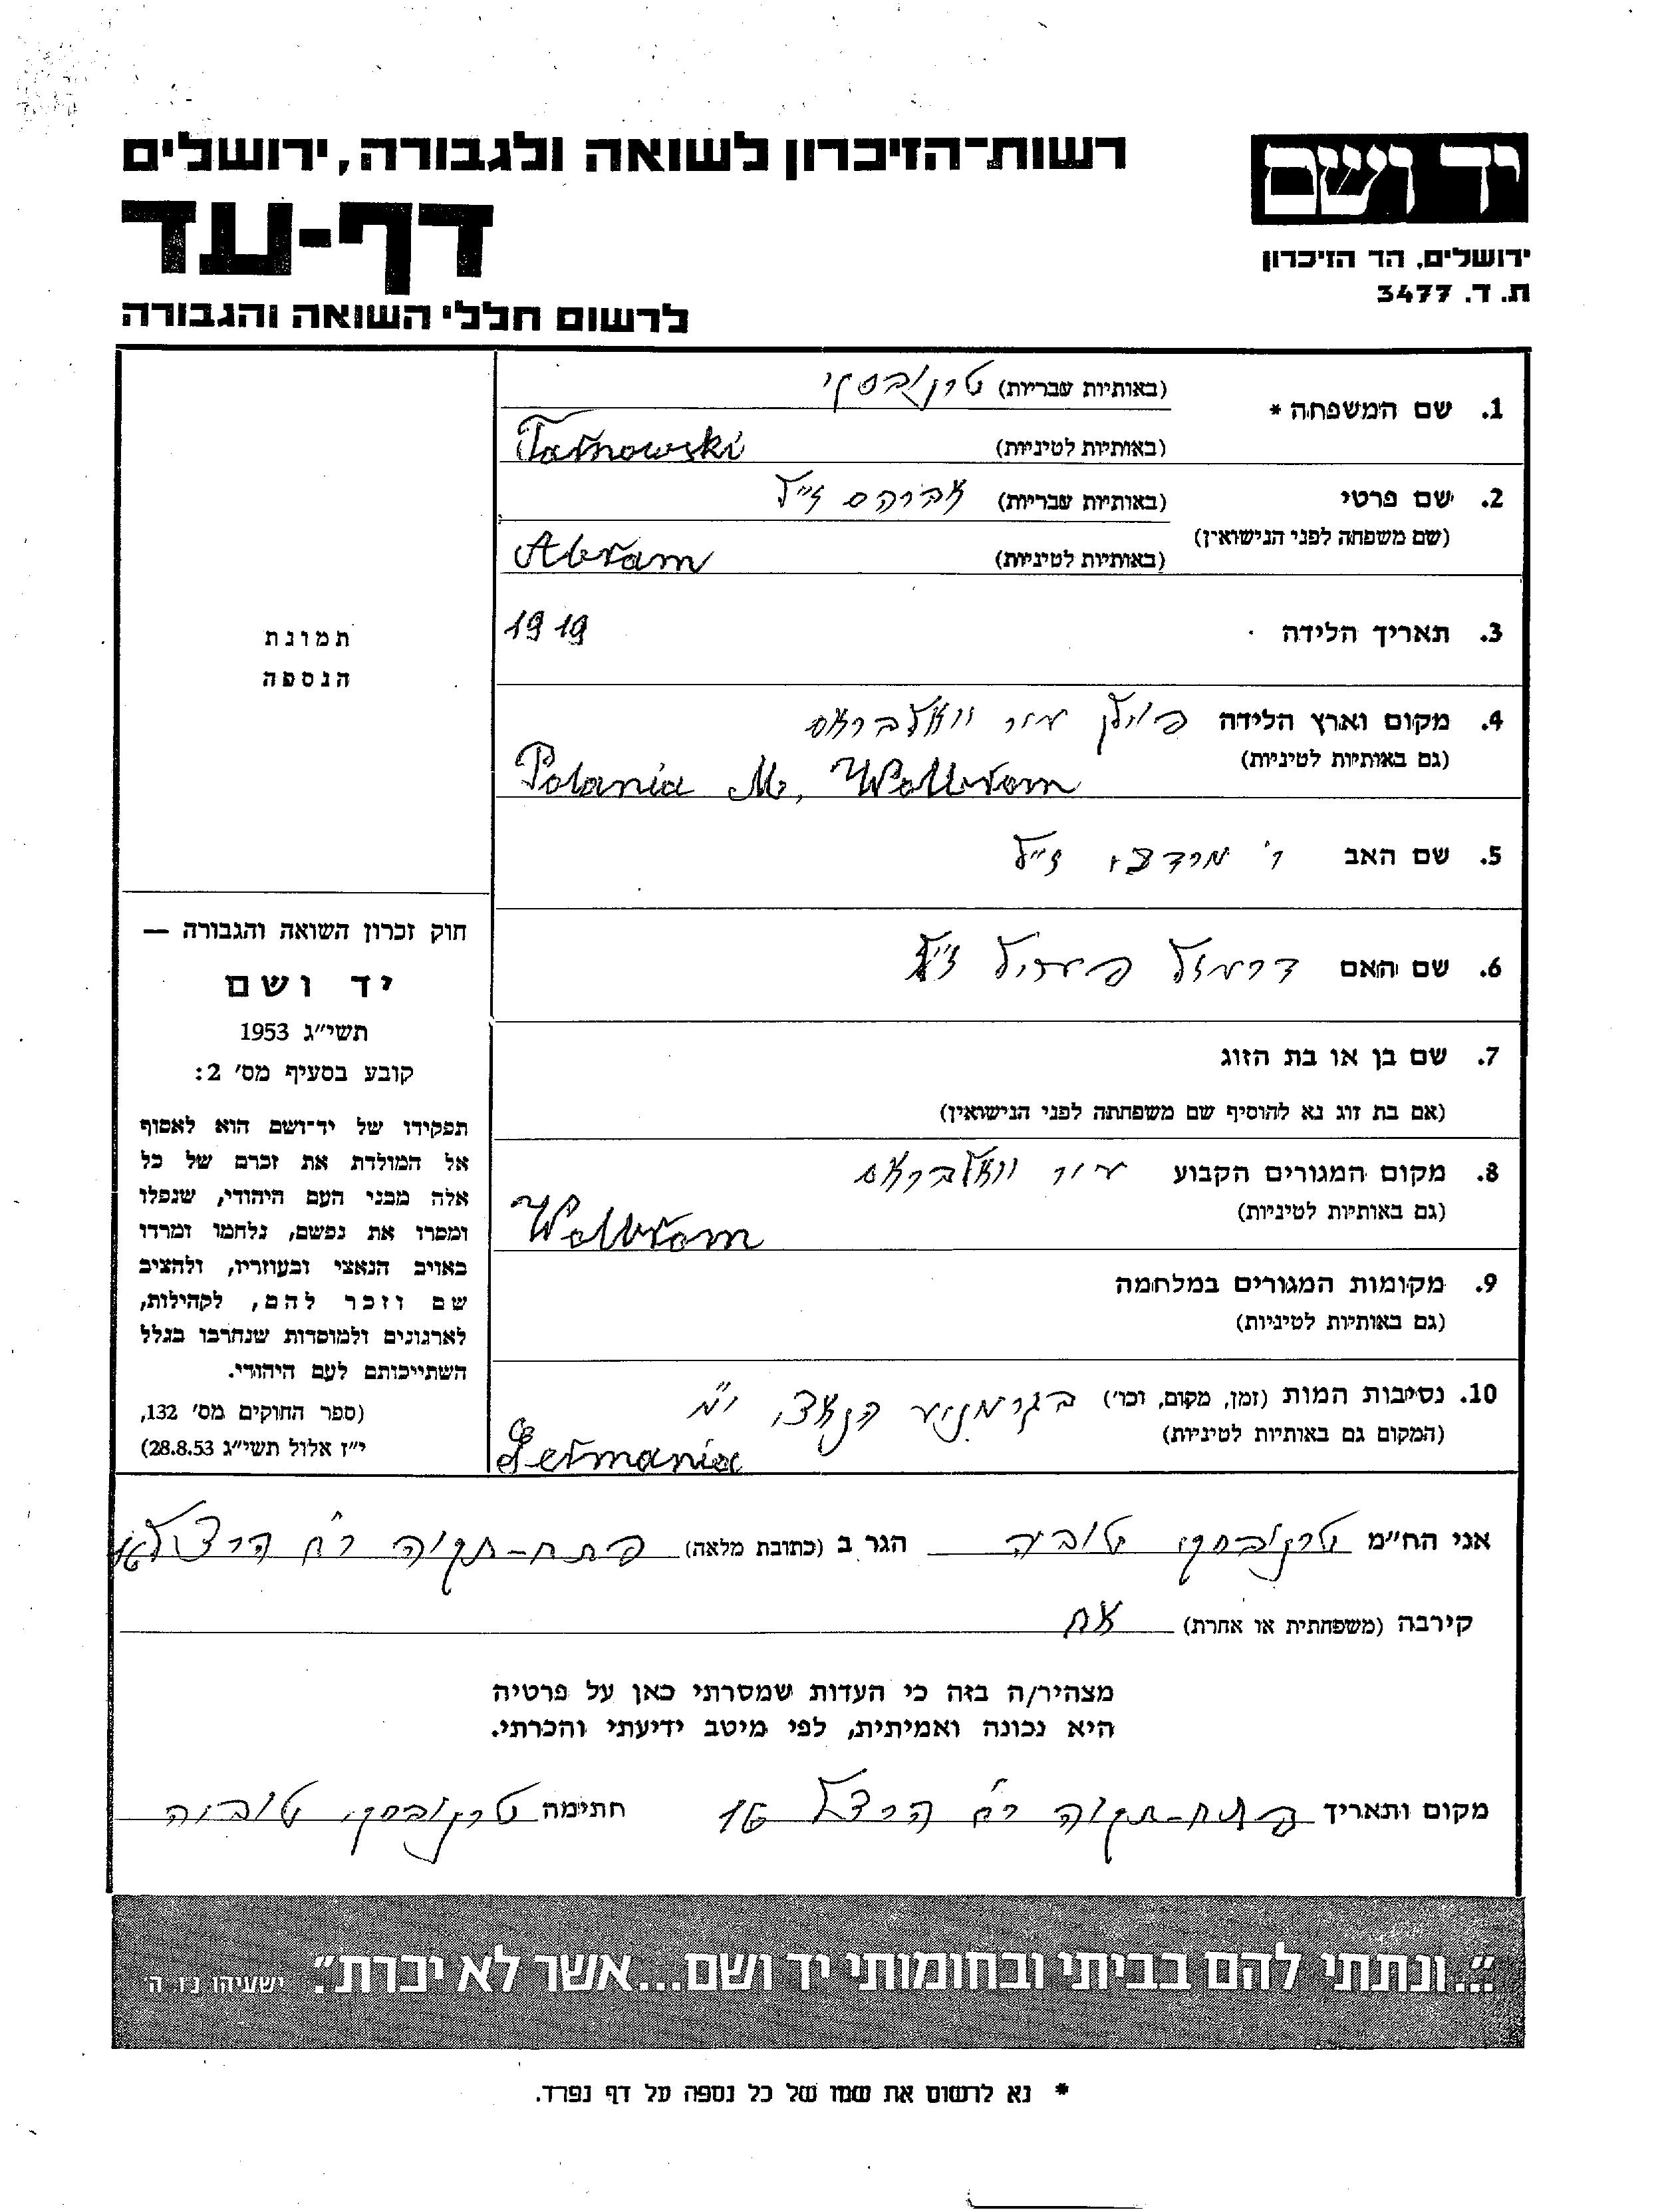 רשות־הזיכרון לשואה ולגבורה, ירושלים
יד ושם
דף-עד
ירושלים, הר הזיכרון
ת. ד. 3477
לרשום חללי השואה והגבורה
1. שם המשפחה *
(באותיות עבריות) טרנובסקי
(באותיות לטיניות) Tarnowski
2. שם פרטי
(שם משפחה לפני הנישואין)
(באותיות עבריות) אברהם ז״ל
(באותיות לטיניות) Abram
3. תאריך הלידה 1919
4. מקום וארץ הלידה פולין עיר וואלבראם
(גם באותיות לטיניות) Polania M, Wolbrom
5. שם האב ר' מרדכי ז״ל
6. שם האם פייגיל ז״ל
7. שם בן או בת הזוג
(אם בת זוג נא להוסיף שם משפחתה לפני הנישואין)
8. מקום המגורים הקבוע עיר וואלבראם
(גם באותיות לטיניות) Wolbrom
9. מקומות המגורים במלחמה
(גם באותיות לטיניות)
10. נסיבות המות (זמן, מקום, וכו') בגרמניא הנאצי
(המקום גם באותיות לטיניות) Germania
תמונת
הנספה
חוק זכרון השואה והגבורה —
יד ושם
תשי״ג 1953
קובע בסעיף מס' 2:
תפקידו של יד־ושם הוא לאסוף
אל המולדת את זכרם של כל
אלה מבני העם היהודי, שנפלו
ומסרו את נפשם, נלחמו ומרדו
באויב הנאצי ובעוזריו, ולהציב
שם וזכר להם, לקהילות,
לארגונים ולמוסדות שנחרבו בגלל
השתייכותם לעם היהודי.
(ספר החוקים מס' 132,
י״ז אלול תשי״ג 28.8.53)
אני הח״מ טרנובסקי טוביה הגר ב (כתובת מלאה) פתח-תקוה רח' הרצל 16
קירבה (משפחתית או אחרת) אח
מצהיר/ה בזה כי העדות שמסרתי כאן על פרטיה
היא נכונה ואמיתית, לפי מיטב ידיעתי והכרתי.
מקום ותאריך פתח-תקוה רח' הרצל 16 חתימה טרנובסקי טוביה
"...ונתתי להם בביתי ובחומותי יד ושם...אשר לא יכרת". ישעיהו נו ה'
* נא לרשום את שמו של כל נספה על דף נפרד.